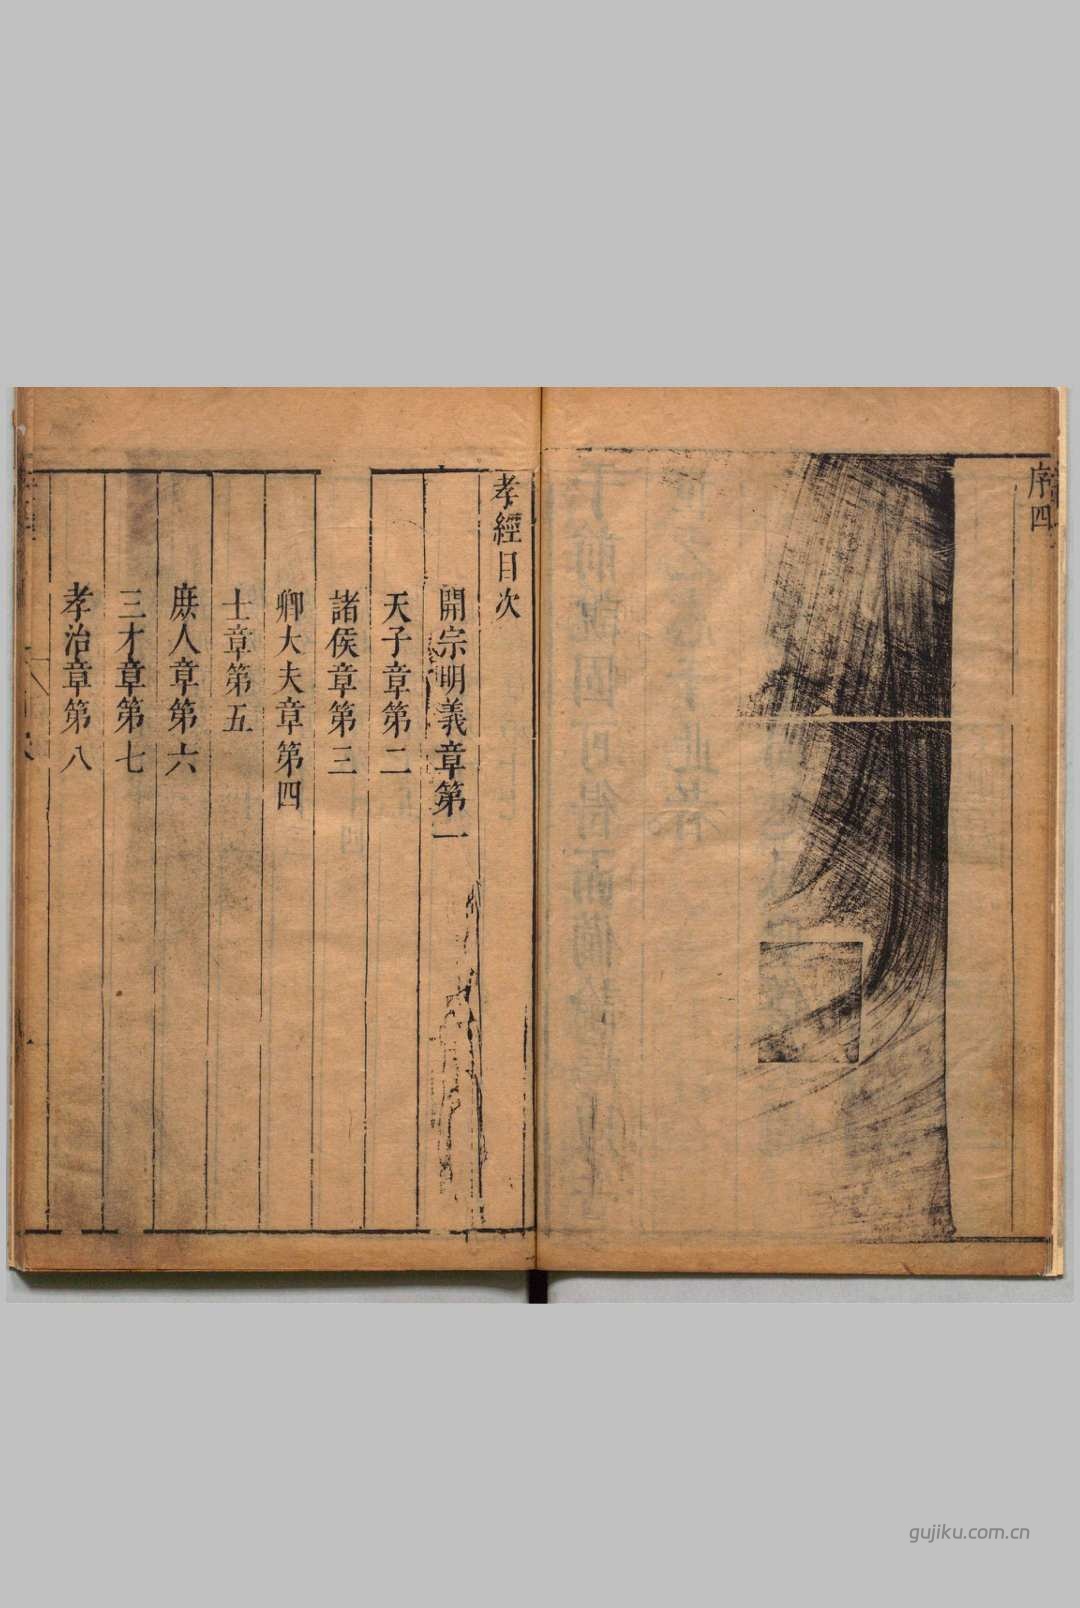 序四
孝經目次
開宗明義章第一
天子章第二
諸侯章第三
卿大夫章第四
士章第五
庶人章第六
三才章第七
孝治章第八
gujiku.com.cn